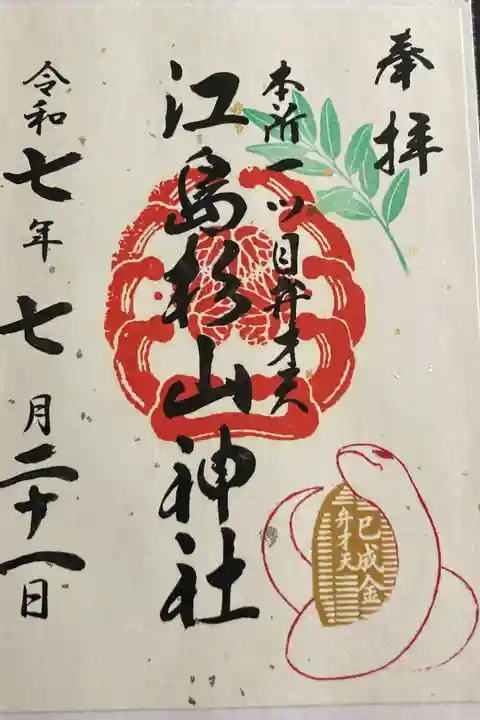 奉拝
本所一ツ目弁才天
江島杉山神社
令和七年七月二十一日
巳成金
弁才天